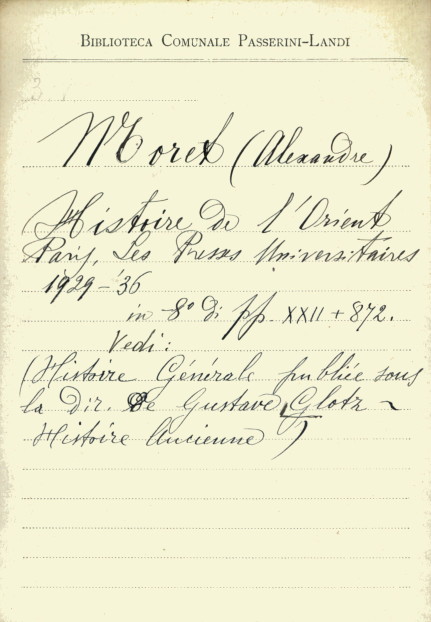 BIBLIOTECA COMUNALE PASSERINI-LANDI
Moret (Alexandre)
Histoire de l'Orient
Paris, Les Presses Universitaires
1929-'36
in 8° di pp. XXII + 872.
Vedi:
(Histoire Générale publiée sous
la dir. de Gustave Glotz -
Histoire Ancienne)